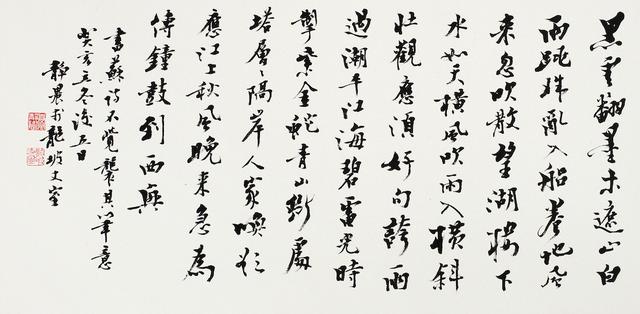 黑雲翻墨未遮山白
雨跳珠亂入船卷地風
来忽吹散望湖樓下
水如天橫風吹雨入樓斜
壯觀應須好句誇雨
過潮平江海碧電光時
掣紫金蛇青山斷處
塔層〻隔岸人家喚欲
應江上秋風晚来急為
傳鐘鼓到西興
書蘇詩不覺襲其筆意
癸亥立冬後五日
靜農於龍坡丈室